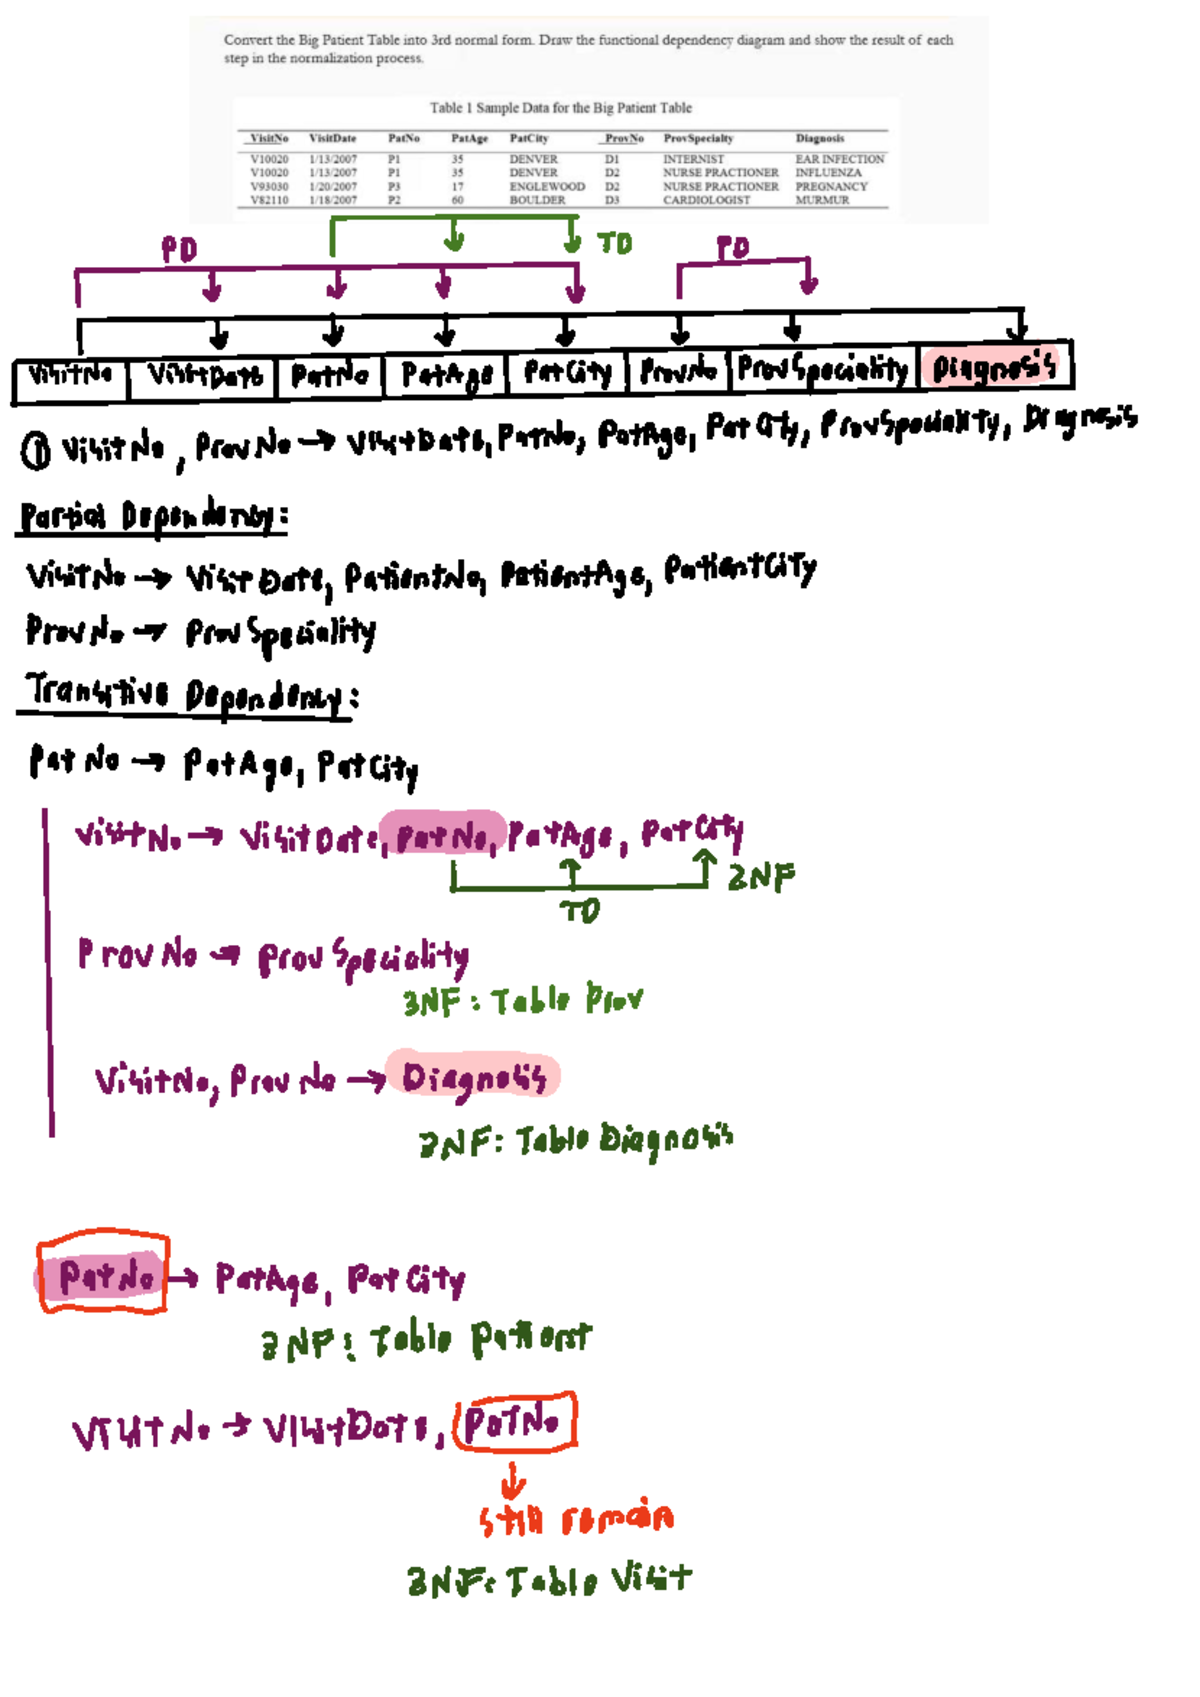 Convert the Big Patient Table into 3rd normal form. Draw the functional dependency diagram and show the result of each
step in the normalization process.
Table 1 Sample Data for the Big Patient Table
VisitNo VisitDate PatNo PatAge PatCity ProvNo ProvSpecialty Diagnosis
V10020 1/13/2007 P1 35 DENVER D1 INTERNIST EAR INFECTION
V10020 1/13/2007 P1 35 DENVER D2 NURSE PRACTIONER INFLUENZA
V93030 1/20/2007 P3 17 ENGLEWOOD D2 NURSE PRACTIONER PREGNANCY
V82110 1/18/2007 P2 60 BOULDER D3 CARDIOLOGIST MURMUR
PD TD PD
VisitNo VisitDate PatNo PatAge PatCity ProvNo ProvSpeciality Diagnosis
① VisitNo, ProvNo → VisitDate, PatNo, PatAge, PatCity, ProvSpeciality, Diagnosis
Partial Dependency:
VisitNo → VisitDate, PatientNo, PatientAge, PatientCity
ProvNo → ProvSpeciality
Transitive Dependency:
PatNo → PatAge, PatCity
VisitNo → VisitDate, PatNo, PatAge, PatCity
2NF
TD
ProvNo → ProvSpeciality
3NF: Table Prov
VisitNo, ProvNo → Diagnosis
3NF: Table Diagnosis
PatNo → PatAge, PatCity
3NF: Table Patient
VisitNo → VisitDate, PatNo
still remain
3NF: Table Visit